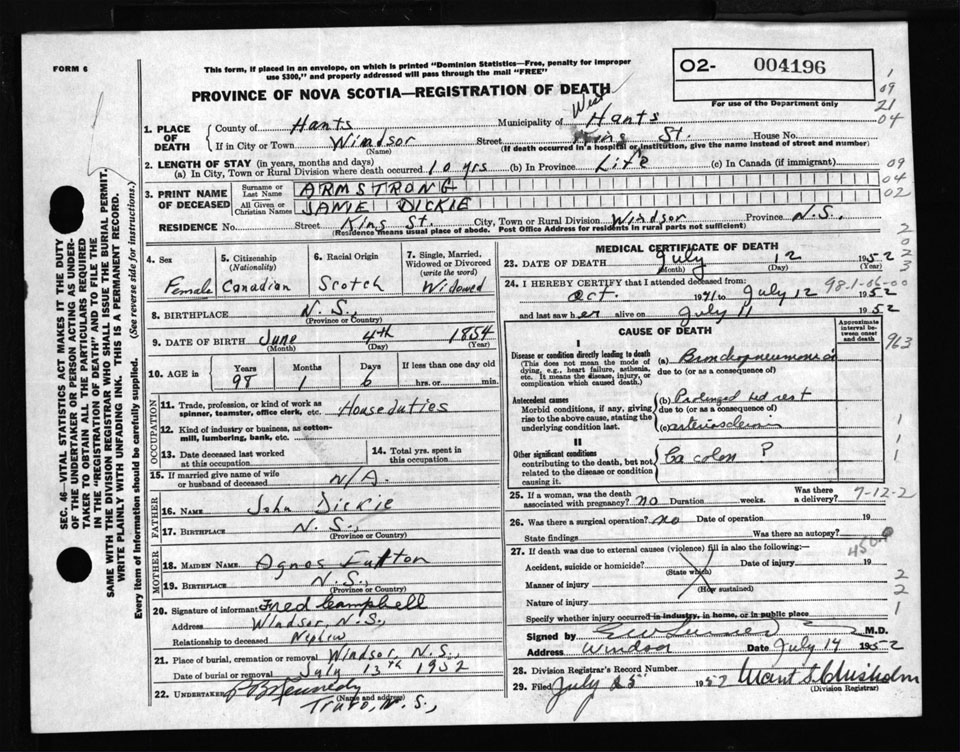 FORM 6
This form, if placed in an envelope, on which is printed "Dominion Statistics—Free, penalty for improper
use $300," and properly addressed will pass through the mail "FREE"
PROVINCE OF NOVA SCOTIA—REGISTRATION OF DEATH
O2- 004196
For use of the Department only
1
09
21
04
1. PLACE OF DEATH
County of Hants Municipality of West Hants
If in City or Town Windsor Street King St. House No.
(Name) (If death occurred in a hospital or institution, give the name instead of street and number)
2. LENGTH OF STAY (in years, months and days)
(a) In City, Town or Rural Division where death occurred 10 yrs (b) In Province Life (c) In Canada (if immigrant)
09
04
02
3. PRINT NAME OF DECEASED
Surname or Last Name ARMSTRONG
All Given or Christian Names JANIE DICKIE
RESIDENCE No. Street King St. City, Town or Rural Division Windsor Province N.S.,
(Residence means usual place of abode. Post Office Address for residents in rural parts not sufficient)
2
0
2
3
SEC. 46—VITAL STATISTICS ACT MAKES IT THE DUTY
OF THE UNDERTAKER OR PERSON ACTING AS UNDER-
TAKER TO OBTAIN ALL THE PARTICULARS REQUIRED
IN THE "REGISTRATION OF DEATH" AND TO FILE THE
SAME WITH THE DIVISION REGISTRAR WHO SHALL ISSUE THE BURIAL PERMIT.
WRITE PLAINLY WITH UNFADING INK. THIS IS A PERMANENT RECORD.
Every item of information should be carefully supplied. (See reverse side for instructions.)
4. Sex Female
5. Citizenship (Nationality) Canadian
6. Racial Origin Scotch
7. Single, Married, Widowed or Divorced (write the word) Widowed
8. BIRTHPLACE N.S.,
(Province or Country)
9. DATE OF BIRTH June 4th 1854
(Month) (Day) (Year)
10. AGE in Years Months Days If less than one day old
98 1 6 hrs. or min.
OCCUPATION
11. Trade, profession, or kind of work as
spinner, teamster, office clerk, etc. House duties
12. Kind of industry or business, as cotton-
mill, lumbering, bank, etc.
13. Date deceased last worked
at this occupation
14. Total yrs. spent in
this occupation
15. If married give name of wife
or husband of deceased N/A.
FATHER
16. NAME John Dickie
17. BIRTHPLACE N.S.,
(Province or Country)
MOTHER
18. MAIDEN NAME Agnes Fulton
19. BIRTHPLACE N.S.,
(Province or Country)
20. Signature of informant Fred Campbell
Address Windsor, N.S.,
Relationship to deceased Nephew
21. Place of burial, cremation or removal Windsor, N.S.,
Date of burial or removal July 13th 1952
22. UNDERTAKER Kennedy
(Name and address)
Truro, N.S.,
MEDICAL CERTIFICATE OF DEATH
23. DATE OF DEATH July 12 1952
(Month) (Day) (Year)
24. I HEREBY CERTIFY that I attended deceased from:
98-1-06-00
Oct. 1941 to July 12 1952
and last saw her alive on July 11 1952
CAUSE OF DEATH
Approximate interval between onset and death
963
I
Disease or condition directly leading to death
(This does not mean the mode of
dying, e.g., heart failure, asthenia,
etc. It means the disease, injury, or
complication which caused death.)
(a) Bronchopneumonia
due to (or as a consequence of)
Antecedent causes
Morbid conditions, if any, giving
rise to the above cause, stating the
underlying condition last.
(b) Prolonged bed rest
due to (or as a consequence of)
(c) arteriosclerosis
II
Other significant conditions
contributing to the death, but not
related to the disease or condition
causing it.
Ca colon ?
1
1
1
25. If a woman, was the death
associated with pregnancy? no Duration weeks. Was there a delivery?
7-12-2
26. Was there a surgical operation? no Date of operation 19
State findings Was there an autopsy?
450.0
27. If death was due to external causes (violence) fill in also the following:—
Accident, suicide or homicide? Date of injury 19
(State which)
Manner of injury
(How sustained)
Nature of injury
Specify whether injury occurred in industry, in home, or in public place
2
2
1
Signed by M.D.
Address Windsor Date July 14 1952
28. Division Registrar's Record Number
29. Filed July 25 1952 Chisholm
(Division Registrar)